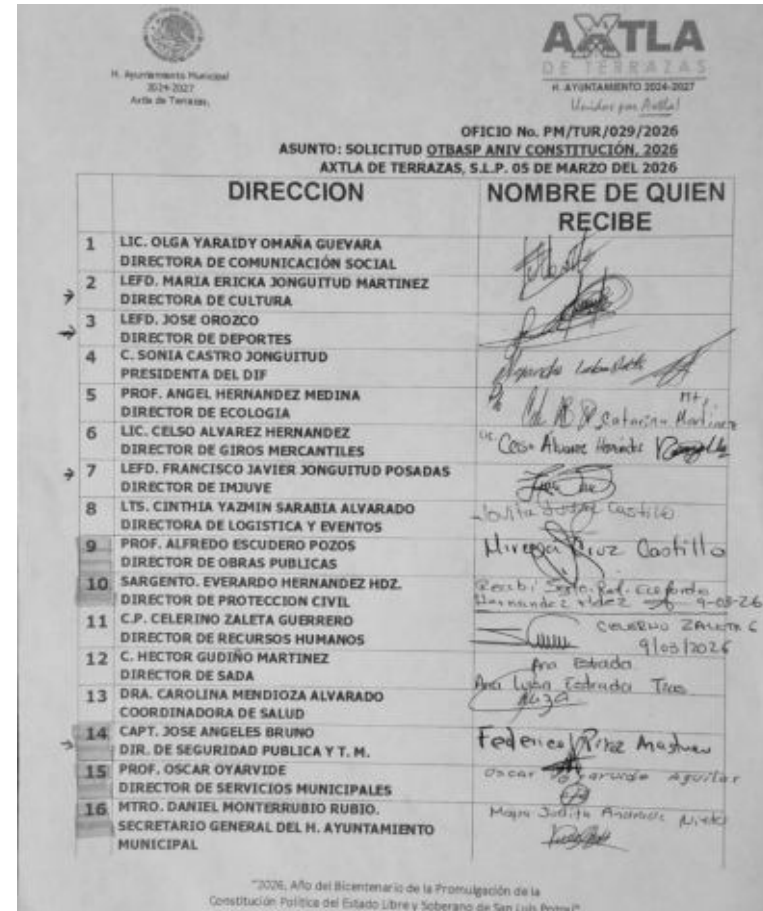 H. Ayuntamiento Municipal
2024-2027
Axtla de Terrazas.
AXTLA
DE TERRAZAS
H. AYUNTAMIENTO 2024-2027
Unidos por Axtla!
OFICIO No. PM/TUR/029/2026
ASUNTO: SOLICITUD OTBASP ANIV CONSTITUCIÓN, 2026
AXTLA DE TERRAZAS, S.L.P. 05 DE MARZO DEL 2026
DIRECCION
NOMBRE DE QUIEN
RECIBE
1 LIC. OLGA YARAIDY OMAÑA GUEVARA
DIRECTORA DE COMUNICACIÓN SOCIAL
2 LEFD. MARIA ERICKA JONGUITUD MARTINEZ
DIRECTORA DE CULTURA
3 LEFD. JOSE OROZCO
DIRECTOR DE DEPORTES
4 C. SONIA CASTRO JONGUITUD
PRESIDENTA DEL DIF
5 PROF. ANGEL HERNANDEZ MEDINA
DIRECTOR DE ECOLOGIA
Catarina Martinez
6 LIC. CELSO ALVAREZ HERNANDEZ
DIRECTOR DE GIROS MERCANTILES
Lic. Celso Alvarez Hernández
7 LEFD. FRANCISCO JAVIER JONGUITUD POSADAS
DIRECTOR DE IMJUVE
8 LTS. CINTHIA YAZMIN SARABIA ALVARADO
DIRECTORA DE LOGISTICA Y EVENTOS
Castillo
9 PROF. ALFREDO ESCUDERO POZOS
DIRECTOR DE OBRAS PUBLICAS
Mireya Cruz Castillo
10 SARGENTO. EVERARDO HERNANDEZ HDZ.
DIRECTOR DE PROTECCION CIVIL
Recibi
Hernandez Hdez 9-03-26
11 C.P. CELERINO ZALETA GUERRERO
DIRECTOR DE RECURSOS HUMANOS
CELERINO ZALETA G
9/03/2026
12 C. HECTOR GUDIÑO MARTINEZ
DIRECTOR DE SADA
Ana Estrada
13 DRA. CAROLINA MENDOZA ALVARADO
COORDINADORA DE SALUD
Ana Estrada
14 CAPT. JOSE ANGELES BRUNO
DIR. DE SEGURIDAD PUBLICA Y T. M.
Federico
15 PROF. OSCAR OYARVIDE
DIRECTOR DE SERVICIOS MUNICIPALES
Oscar Aguilar
16 MTRO. DANIEL MONTERRUBIO RUBIO.
SECRETARIO GENERAL DEL H. AYUNTAMIENTO
MUNICIPAL
"2026, Año del Bicentenario de la Promulgación de la
Constitución Política del Estado Libre y Soberano de San Luis Potosí"